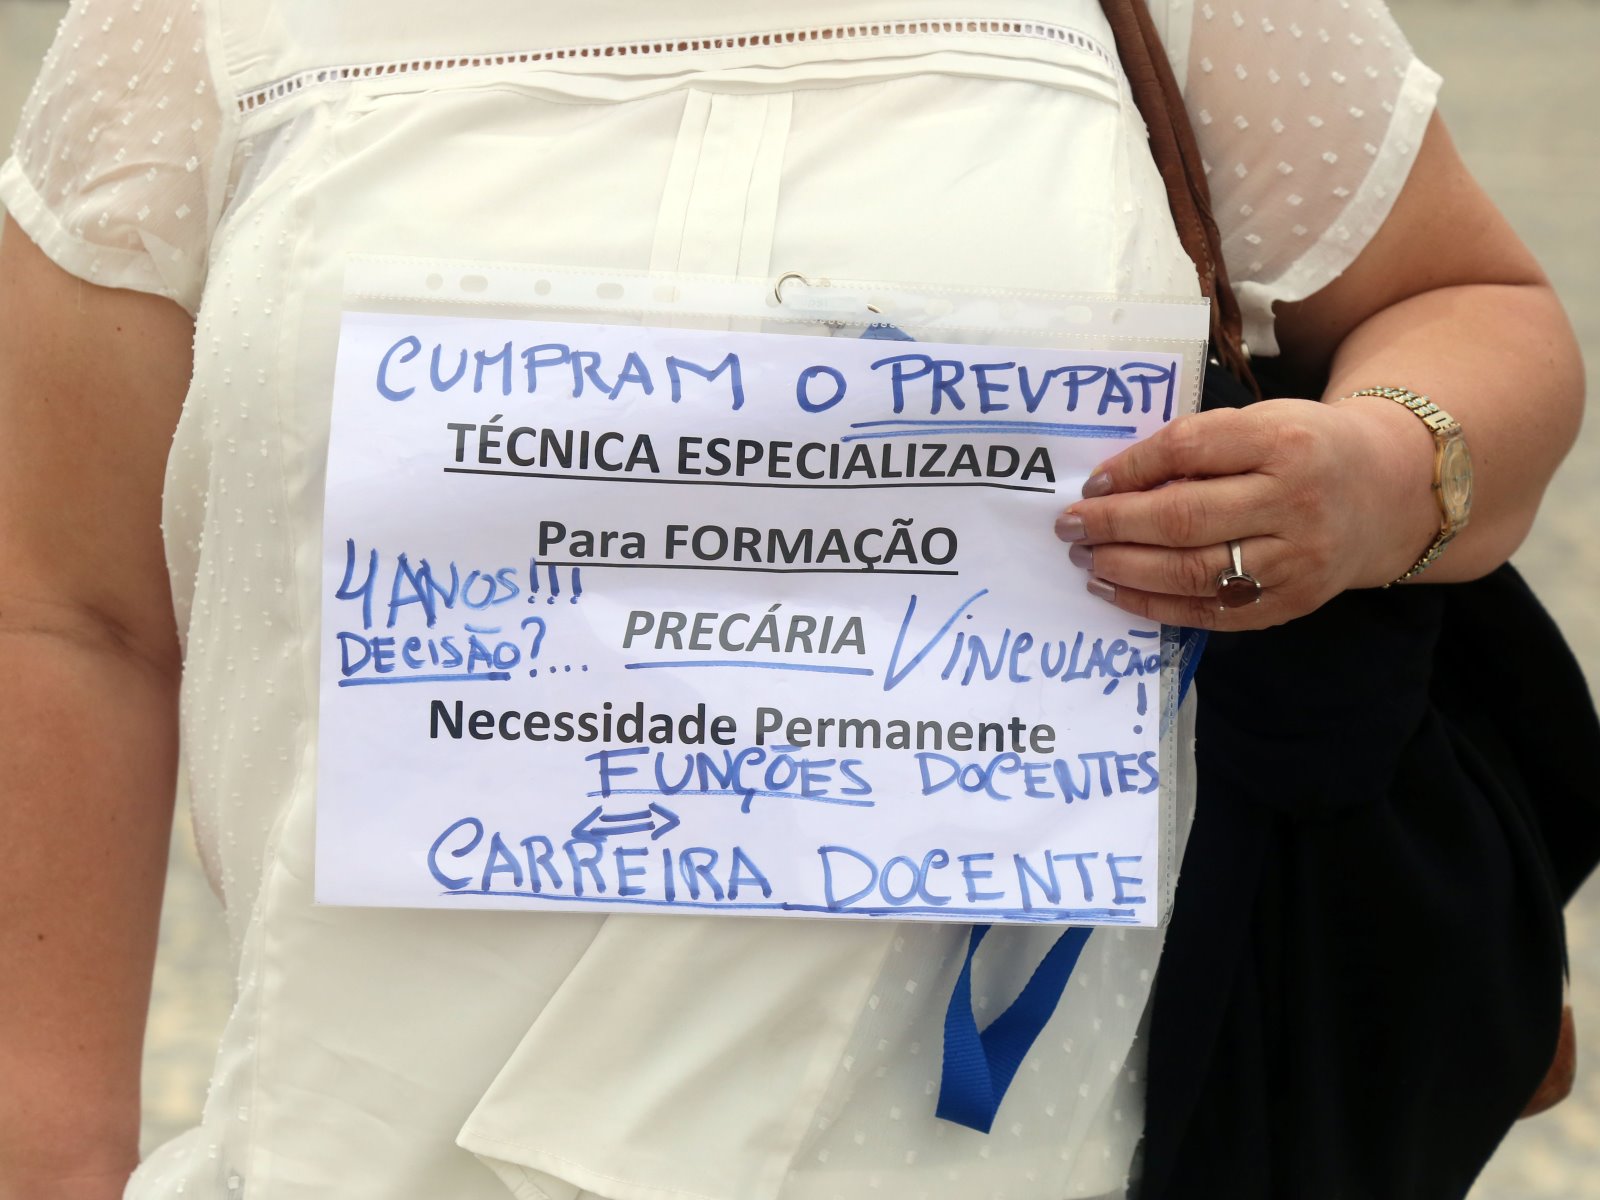 CUMPRAM O PREVPAP!
TÉCNICA ESPECIALIZADA
Para FORMAÇÃO
4 ANOS!!!
DECISÃO?...
PRECÁRIA
VINCULAÇÃO
!
Necessidade Permanente
FUNÇÕES DOCENTES
⇔
CARREIRA DOCENTE